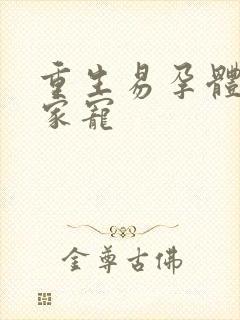 重生易孕體
家寵
金尊古佛